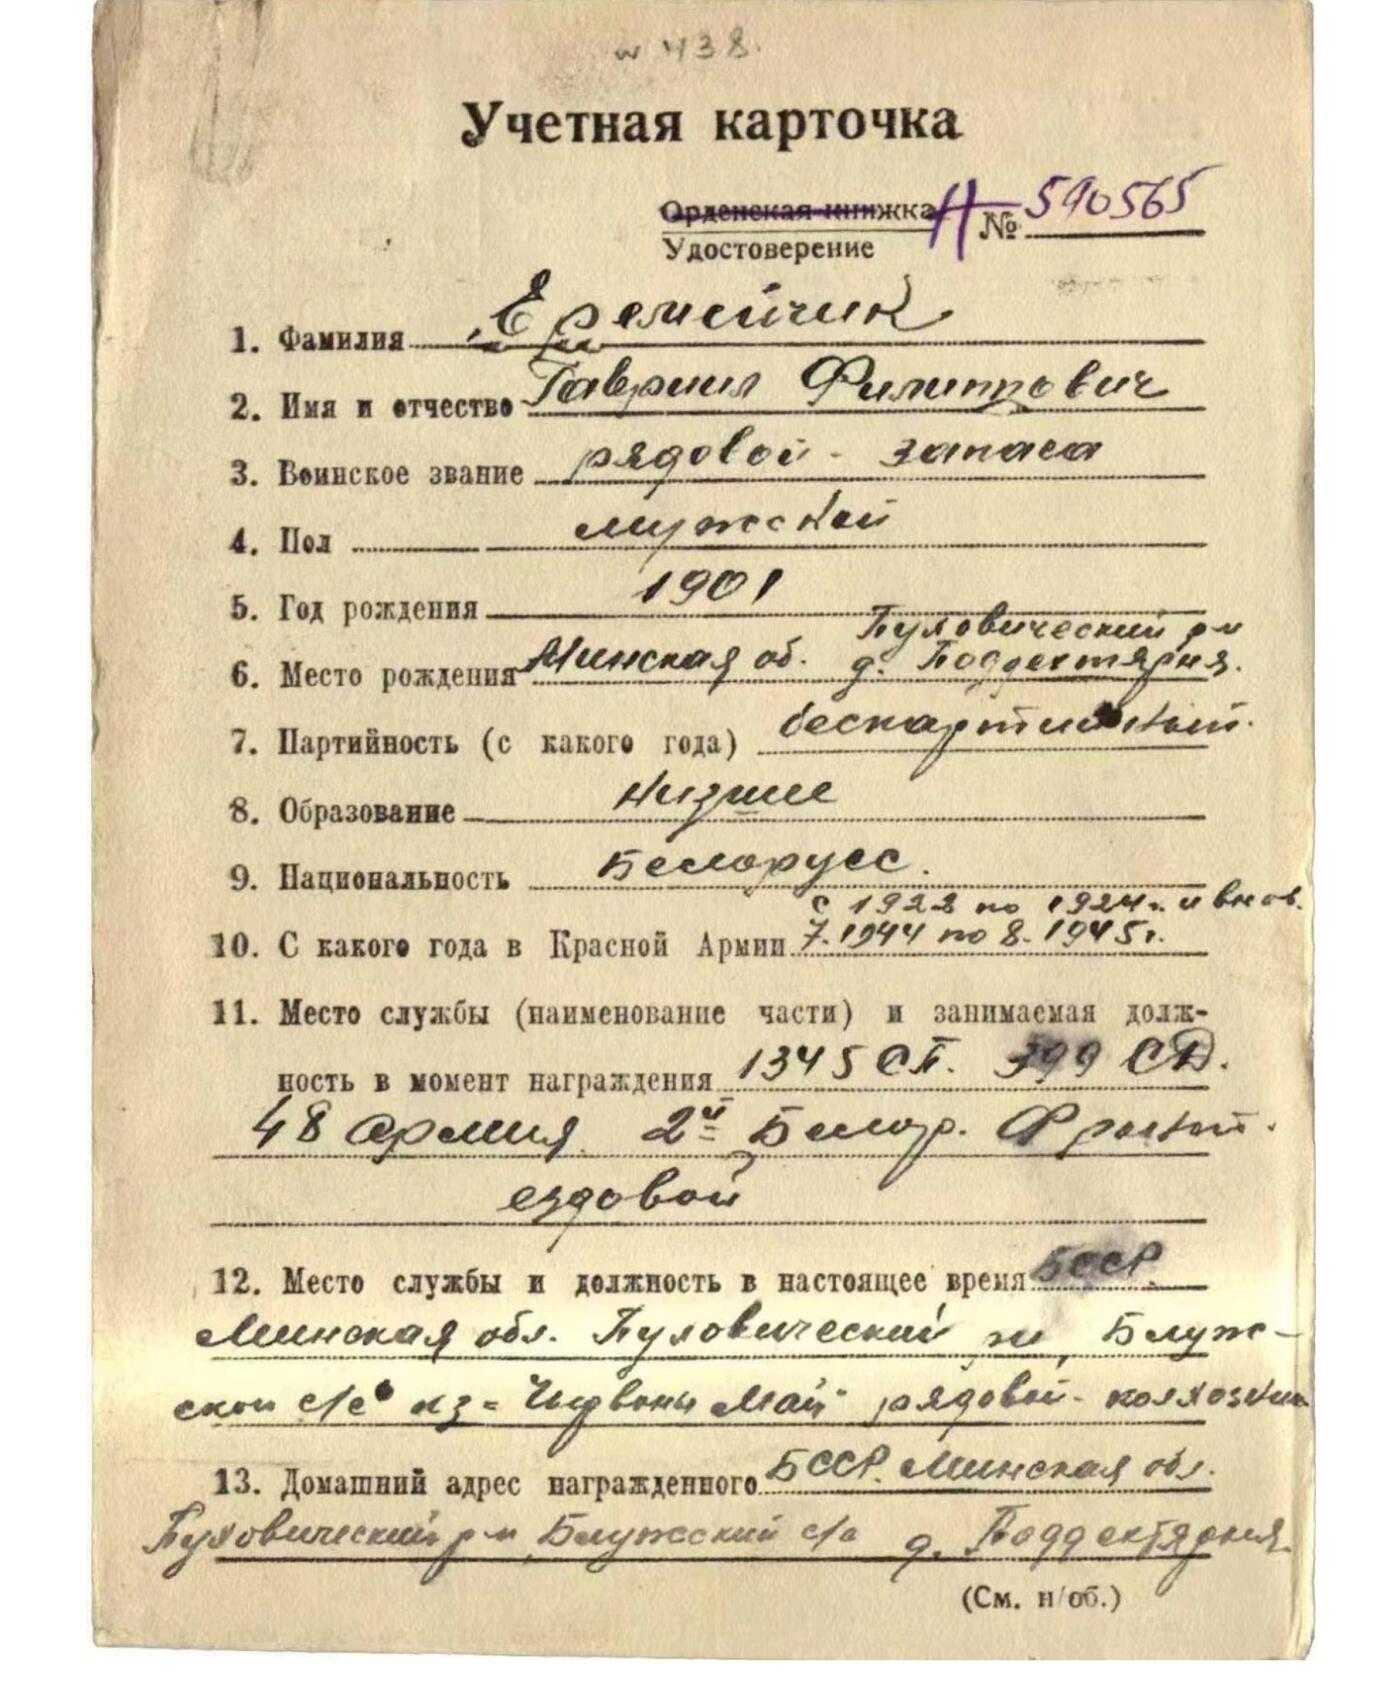 N 438.
Учетная карточка
Орденская книжка
Удостоверение
Н № 590565
1. Фамилия Еремейчик
2. Имя и отчество Гавриил Филиппович
3. Воинское звание рядовой - запаса
4. Пол мужской
5. Год рождения 1901
Пуховический р-н
6. Место рождения Минская об. д. Поддегтярня.
7. Партийность (с какого года) беспартийный.
8. Образование низшее
9. Национальность Белорусс.
с 1922 по 1924 г. и внов.
10. С какого года в Красной Армии 7.1944 по 8.1945 г.
11. Место службы (наименование части) и занимаемая долж-
ность в момент награждения 1345 СП. 399 СД.
48 армия 2й Белор. Фронт.
ездовой
12. Место службы и должность в настоящее время БССР.
Минская обл. Пуховический рн, Блуж-
ской с/с кз = Чырвоны Май" рядовой - колхозник
13. Домашний адрес награжденного БССР. Минская обл.
Пуховический р-н Блужский с/с д. Поддектярня.
(См. н/об.)